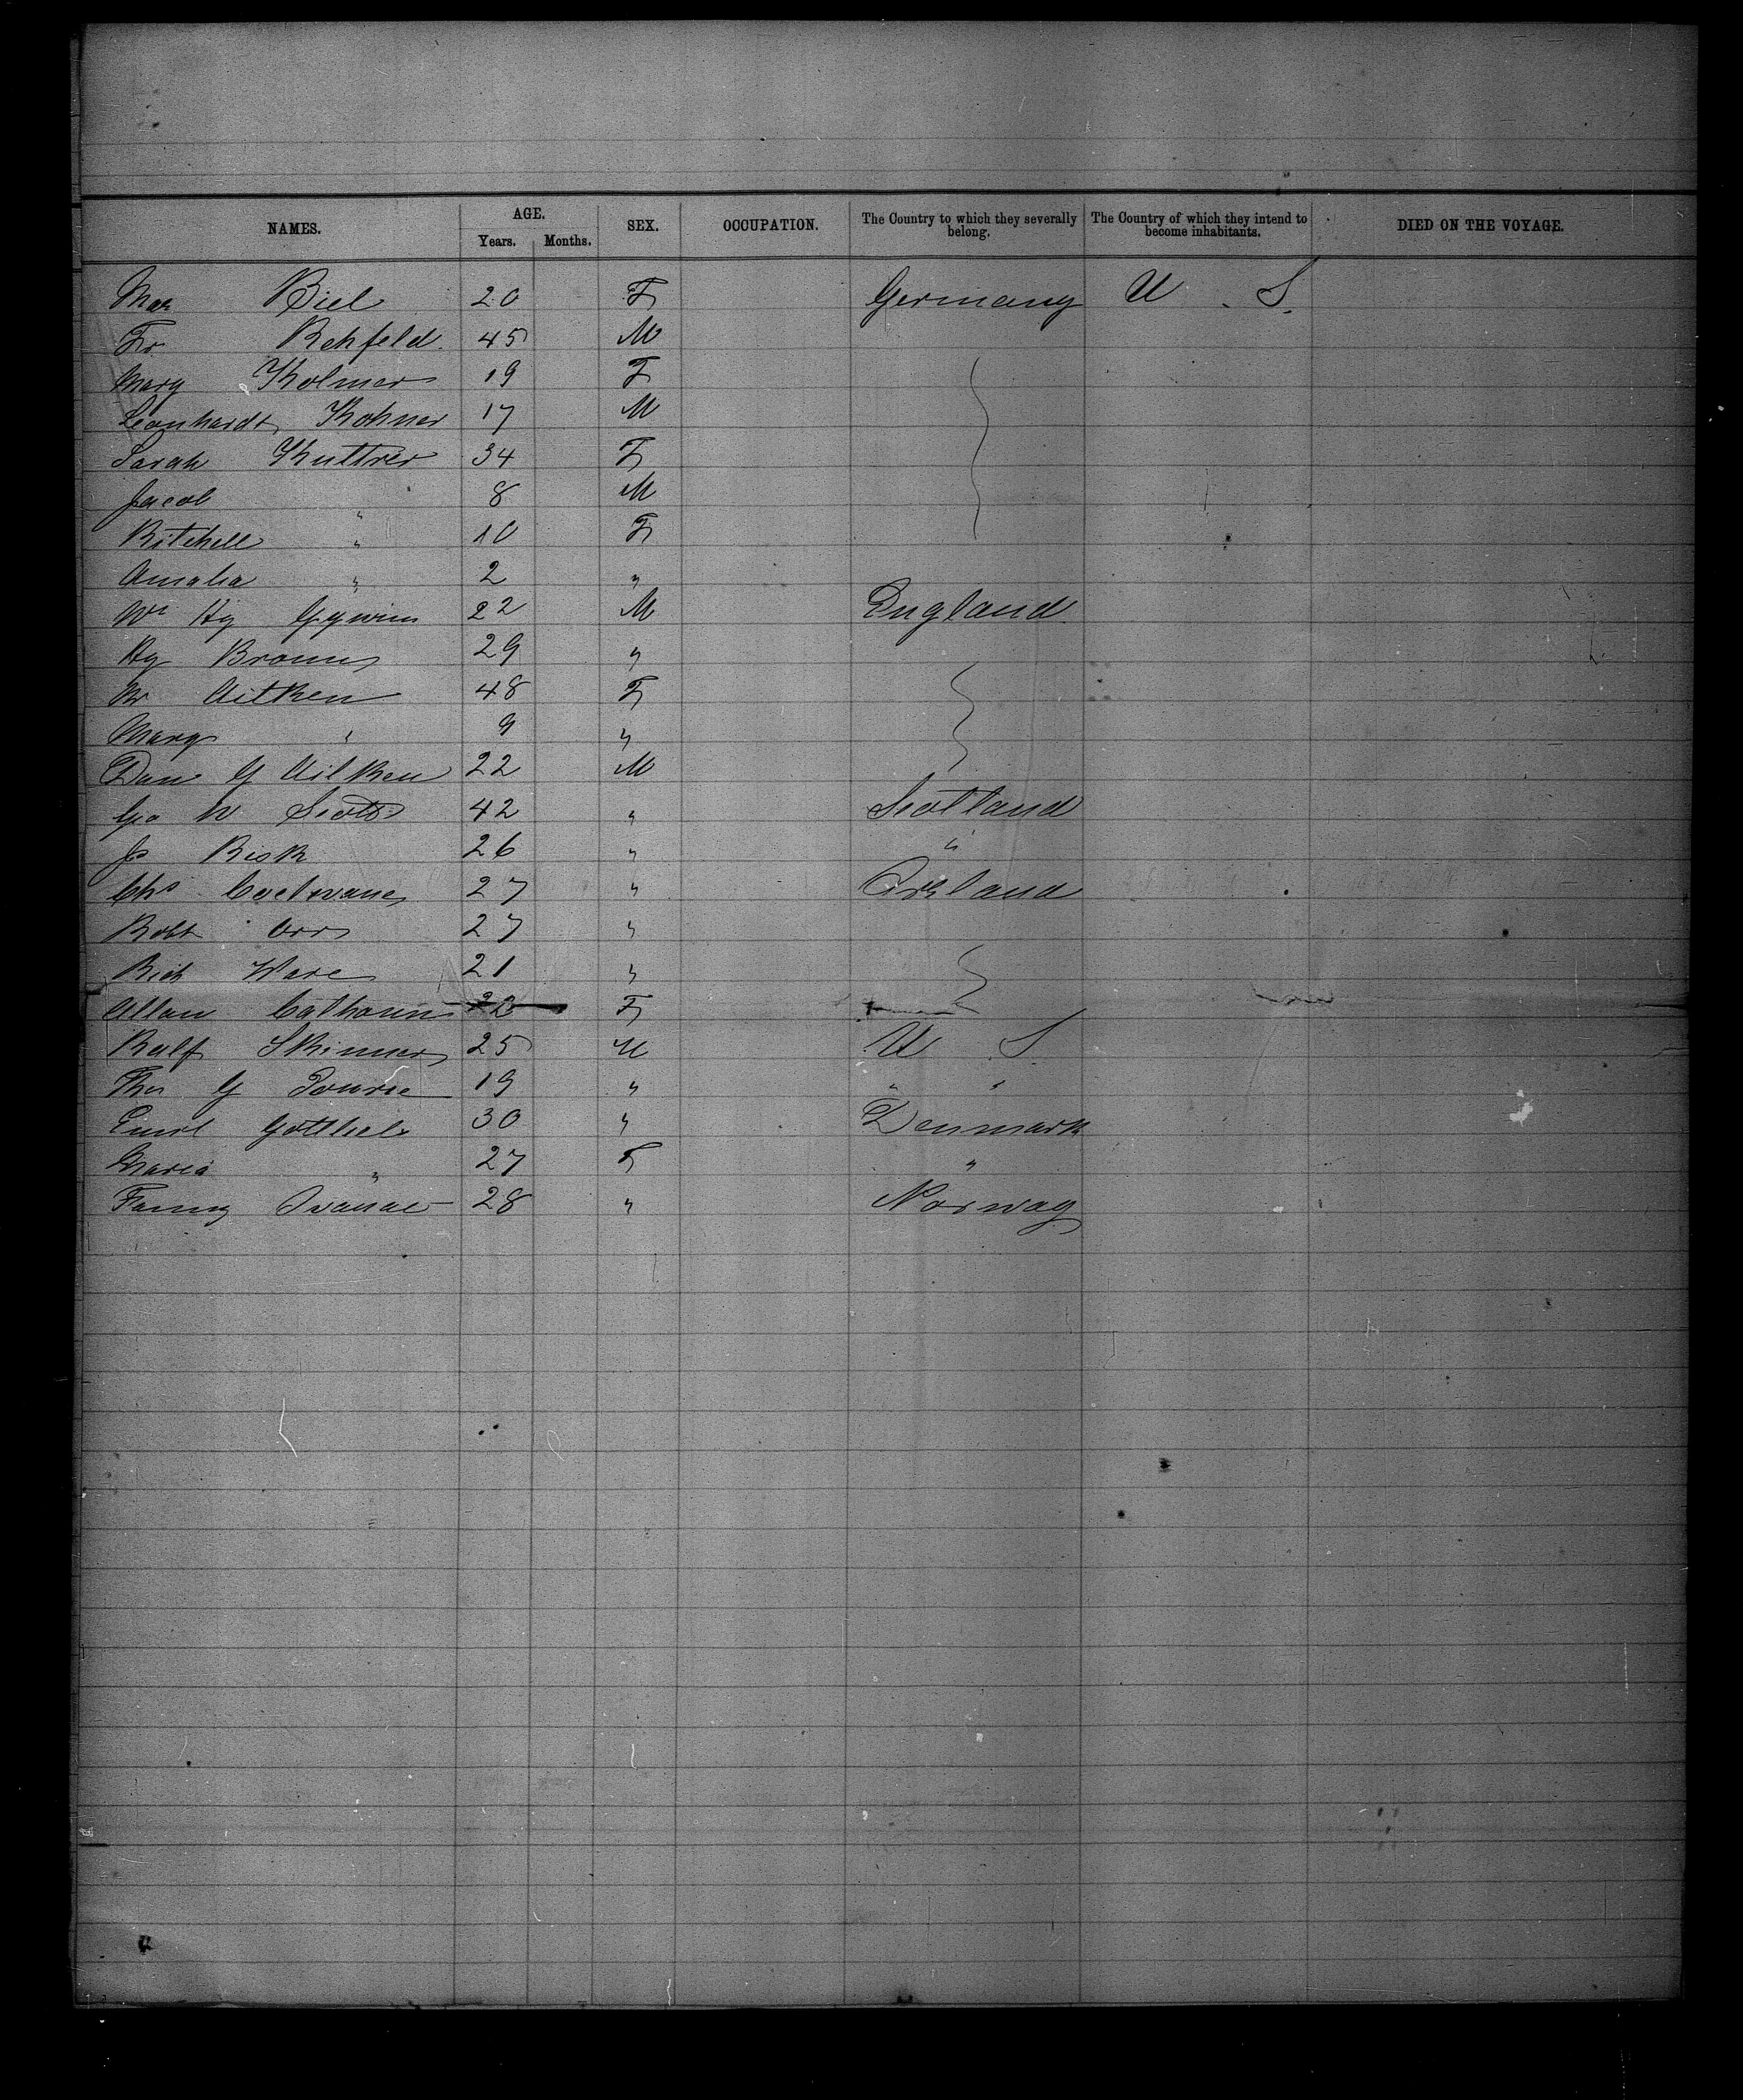 NAMES. AGE. Years. Months. SEX. OCCUPATION. The Country to which they severally belong. The Country of which they intend to become inhabitants. DIED ON THE VOYAGE.
Biel 20 F Germany U. S.
Fr. Rehfeld 45 M
Mary Kolmer 19 F
Leonhardt Kohner 17 M
Sarah Kuttrer 34 F
Jacob " 8 M
Ritchell " 10 F
Amalia " 2 "
Wm Hy 22 M England
Hy Brown 29 "
Aitken 48 F
Marg " 9 "
Dan G Aitken 22 M
Geo W Scott 42 " Scotland
Js Risk 26 " "
Chs 27 " Ireland
Robt Orr 27 "
Rich Ware 21 "
Allan Catharin F
Ralf Skinner 25 M U S
Thos G Pourie 19 " " "
Emil Gottlieb 30 " Denmark
Maria " 27 F "
Fanny 28 " Norway